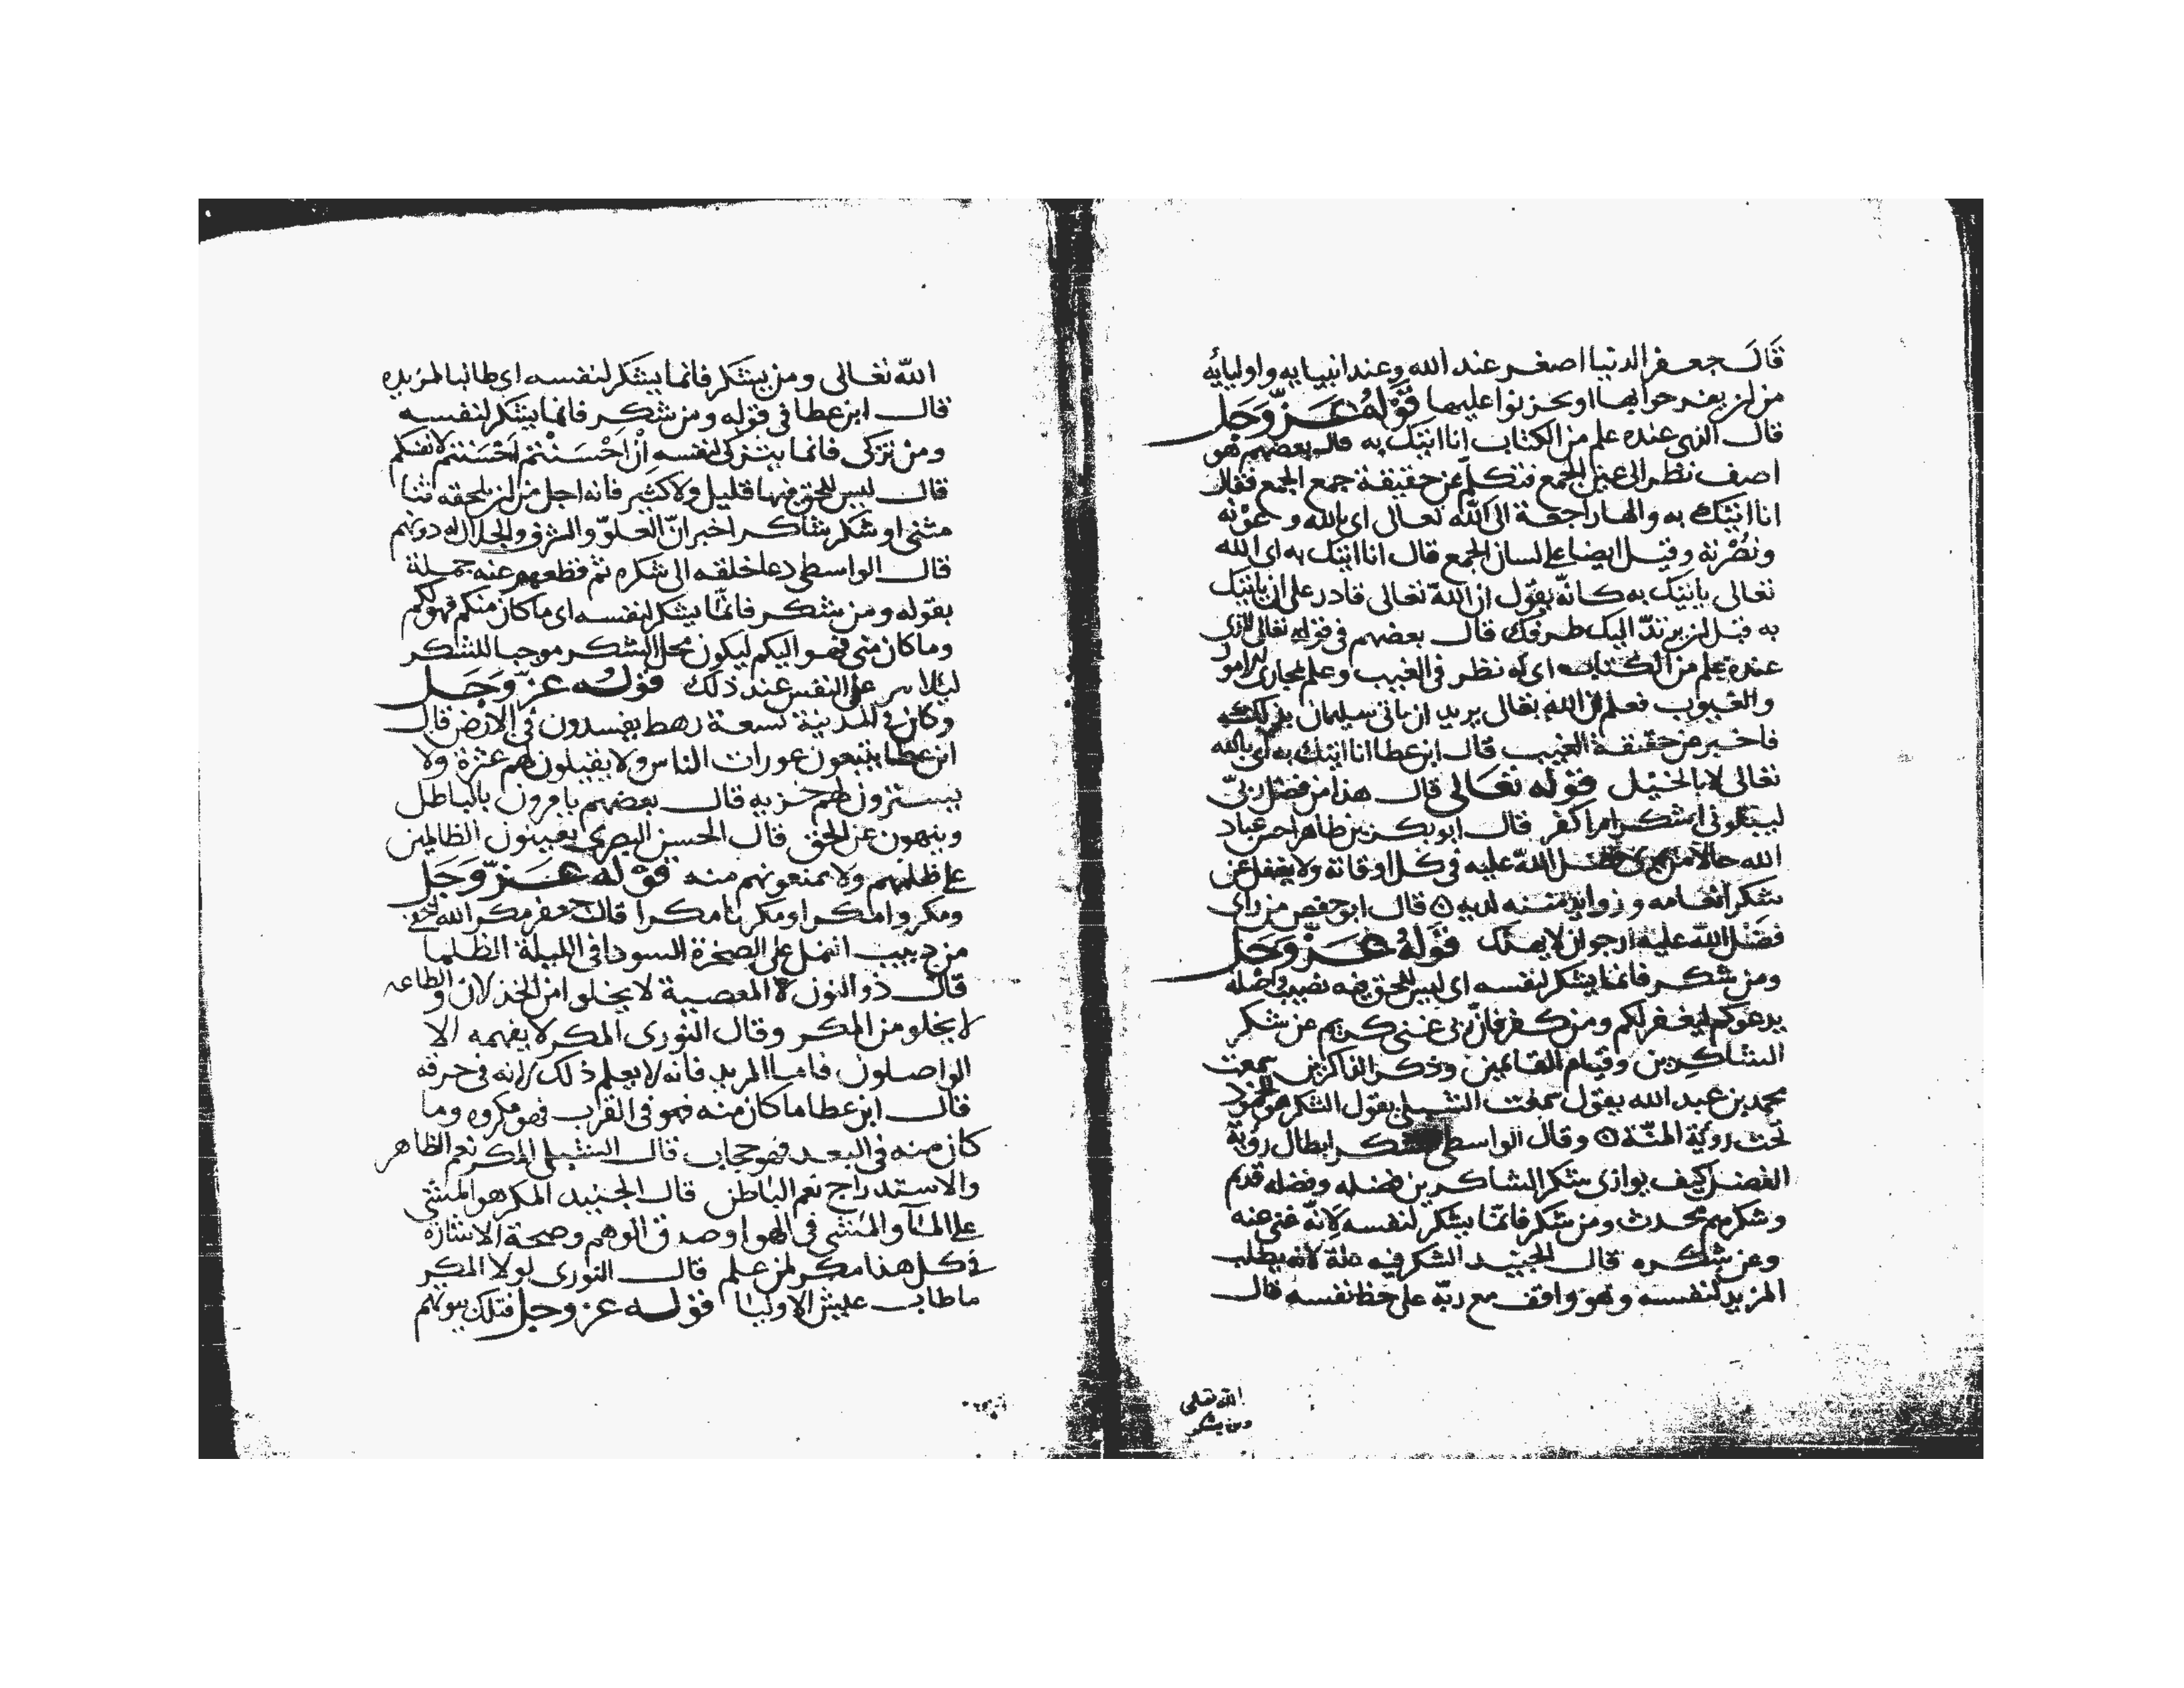 قَالَ جعفر الدنيا اصغر عند الله وعند انبيايه واوليائه
من ان يفرحوا بها او يحزنوا عليها قَوْلُهُ عَزَّ وَجَل
قال الذي عنده علم من الكتاب انا اتيك به قال بعضهم هو
اصف نظر الى عين الجمع فتكلم عن حقيقة جمع الجمع فقال
انا اتيك به والها راجعة الى الله تعالى اى بالله وعونه
ونصرته وقيل ايضا على لسان الجمع قال انا اتيك به اى الله
تعالى ياتيك به كانّه يقول ان الله تعالى قادر على ان ياتيك
به قبل ان يرتدّ اليك طرفك قال بعضهم فى قوله تعالى الذى
عنده علم من الكتاب اى له نظر فى الغيب وعلم لمجارى الامور
والغيوب فعلم ان الله تعالى يريد ان ياتى سليمان بذلك
فاخبر عن حقيقة الغيب قال ابن عطا انا اتيك به اى بالله
تعالى لا بالحيل قوله تعَالى قال هذا من فضل ربّى
ليبلونى ااشكر ام اكفر قال ابو بكر بن طاهر احسن عباد
الله حالا من فضل الله عليه فى كل اوقاته ولا يغفل عن
شكر انعامه وزوايد مننه لديه قال ابو حفص من راى
فضل الله عليه ارجو ان لا يهلك قَولهُ عَزّ وَجَل
ومن شكر فانما يشكر لنفسه اى ليس للحق فيه نصيب واصله
يدعوكم ليغفر لكم ومن كفر فانّ ربى غنى كريم عن شكر
الشاكرين وقيام القايمين وذكر الذاكرين سمعت
محمد بن عبد الله يقول سمعت الشبلى يقول الشكر هو الخمود
تحت رؤية المنّة وقال الواسطى الشكر ابطال رؤية
الفضل كيف يوازى شكر الشاكرين فضله وفضله قديم
وشكرهم محدث ومن شكر فانّما يشكر لنفسه لانّه غنى عنه
وعن شكره قال الجنيد الشكر فيه علة لانه يطلب
المزيد لنفسه وهو واقف مع ربّه على حظ نفسه قال
الله تعلى
ومن يشكر
اللّه تعالى ومن يشكر فانما يشكر لنفسه اى طالبا لمزيده
قال ابن عطا فى قوله ومن شكر فانما يشكر لنفسه
ومن تزكى فانما يتزكى لنفسه اِنْ اَحْسَنْتُمْ اَحْسَنْتُم لانفسكم
قال ليس للحق فيها قليل ولا كثير فانه اجل من ان يلحقه ثنا
مثنى او شكر شاكر اخبر انّ العلوّ والشرف والجلال له دونهم
قال الواسطى دعا خلقه الى شكره ثم قطعهم عنه جملة
بقوله ومن شكر فانّما يشكر لنفسه اى ما كان منكم فهو لكم
وما كان منى فهو اليكم ليكون محل الشكر موجبا للشكر
ليلا على النفس عند ذلك قولُه عزّ وَجَل
وكان فى المدينة تسعة رهط يفسدون فى الارض قال
ابن عطا يتبعون عورات الناس ولا يقبلون لهم عثرة ولا
يسترون لهم خزيه قال بعضهم يامرون بالباطل
وينهون عن الحق قال الحسن البصرى يعينون الظالمين
على ظلمهم ولا يمنعونهم منه قوْله عَزّ وَجَل
ومكروا مكرا ومكرنا مكرا قال جعفر مكر الله اخفى
من دبيب النمل على الصخرة السودا فى الليلة الظلما
قال ذو النون المعصية لا يخلوا من الخذلان والطاعه
لا يخلو من المكر وقال النورى المكر لا يفهمه الا
الواصلون فاما المريد فانه لا يعلم ذلك لانه فى حرقه
قال ابن عطا ما كان منه فهو فى القراب فهو مكروه وما
كان منه فى البعد فهو حجاب قال الشبلى المكر نعم الظاهر
والاستدراج نعم الباطن قال الجنيد المكر هو المشى
على المآ والمشى فى الهوا وصدق الوهم وصحة الاشارة
فى كل هذا مكر لمن علم قال النورى لولا المكر
ما طاب عيش الاوليا قولُه عز وجل فتلك بيوتهم